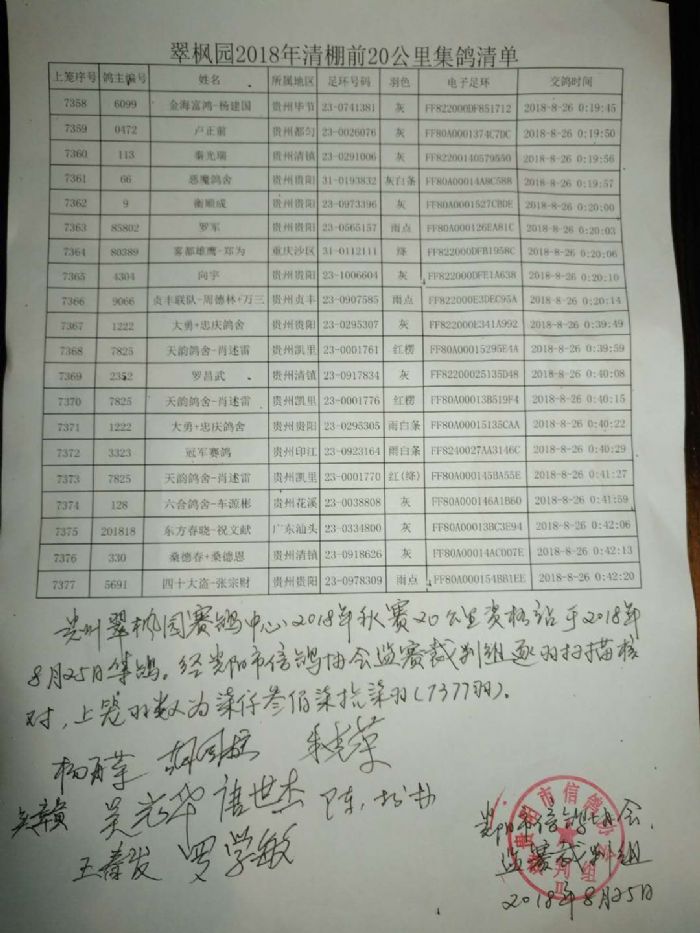 翠枫园2018年清棚前20公里集鸽清单
上笼序号 鸽主编号 姓名 所属地区 足环号码 羽色 电子足环 交鸽时间
7358 6099 金海富鸿-杨建国 贵州毕节 23-0741381 灰 FF822000DF851712 2018-8-26 0:19:45
7359 0472 卢正前 贵州都匀 23-0026076 灰 FF80A0001374C7DC 2018-8-26 0:19:50
7360 113 秦光瑞 贵州清镇 23-0291006 灰 FF82200140579550 2018-8-26 0:19:56
7361 66 恶魔鸽舍 贵州贵阳 31-0193832 灰白条 FF80A00014A8C588 2018-8-26 0:19:57
7362 9 衡顺成 贵州贵阳 23-0973396 灰 FF80A0001527CBDE 2018-8-26 0:20:00
7363 85802 罗军 贵州贵阳 23-0565157 雨点 FF80A000126EA81C 2018-8-26 0:20:03
7364 80389 雾都雄鹰-郑为 重庆沙区 31-0112111 绛 FF822000DFB1958C 2018-8-26 0:20:06
7365 4304 向宇 贵州贵阳 23-1006604 灰 FF822000DFE1A638 2018-8-26 0:20:10
7366 9066 贞丰联队-周德林+万三 贵州贞丰 23-0907585 雨点 FF822000E3DEC95A 2018-8-26 0:20:14
7367 1222 大勇+忠庆鸽舍 贵州贵阳 23-0295307 灰 FF822000E341A992 2018-8-26 0:39:49
7368 7825 天韵鸽舍-肖述雷 贵州凯里 23-0001761 红楞 FF80A00015295E4A 2018-8-26 0:39:59
7369 2352 罗昌武 贵州清镇 23-0917834 灰 FF82200025135D48 2018-8-26 0:40:08
7370 7825 天韵鸽舍-肖述雷 贵州凯里 23-0001776 红楞 FF80A00013B519F4 2018-8-26 0:40:15
7371 1222 大勇+忠庆鸽舍 贵州贵阳 23-0295305 雨白条 FF80A00015135CAA 2018-8-26 0:40:22
7372 3323 冠军赛鸽 贵州印江 23-0923164 雨白条 FF8240027AA3146C 2018-8-26 0:40:29
7373 7825 天韵鸽舍-肖述雷 贵州凯里 23-0001770 红(绛) FF80A000145BA55E 2018-8-26 0:41:27
7374 128 六合鸽舍-车源彬 贵州花溪 23-0038808 灰 FF80A000146A1B60 2018-8-26 0:41:59
7375 201818 东方春晓-祝文献 广东汕头 23-0334800 灰 FF80A00013BC3E94 2018-8-26 0:42:06
7376 330 桑德春+桑德恩 贵州清镇 23-0918626 灰 FF80A00014AC007E 2018-8-26 0:42:13
7377 5691 四十大盗-张宗财 贵州贵阳 23-0978309 雨点 FF80A000154BB1EE 2018-8-26 0:42:20
贵州翠枫园赛鸽中心2018年秋赛20公里资格站于2018年
8月25日集鸽。经贵阳市信鸽协会监赛裁判组逐羽扫描核
对,上笼羽数为柒仟叁佰柒拾柒羽(7377羽)。
吴光华 唐世杰
王春发 罗学敏
贵阳市信鸽协会
监赛裁判组
2018年8月25日